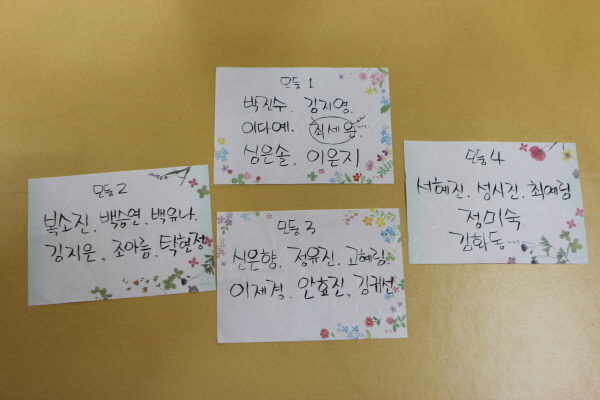 모둠 1
박진수. 김지영.
이다예. 최세움.
심은솔. 이은지
모둠 2
복소진. 백승연. 백유나.
김지은. 조아름. 탁현정
모둠 3
신은향. 정유진. 고혜림.
이제경. 안효진. 김귀선
모둠 4
서혜진. 성시진. 최예림
정미숙
김화동